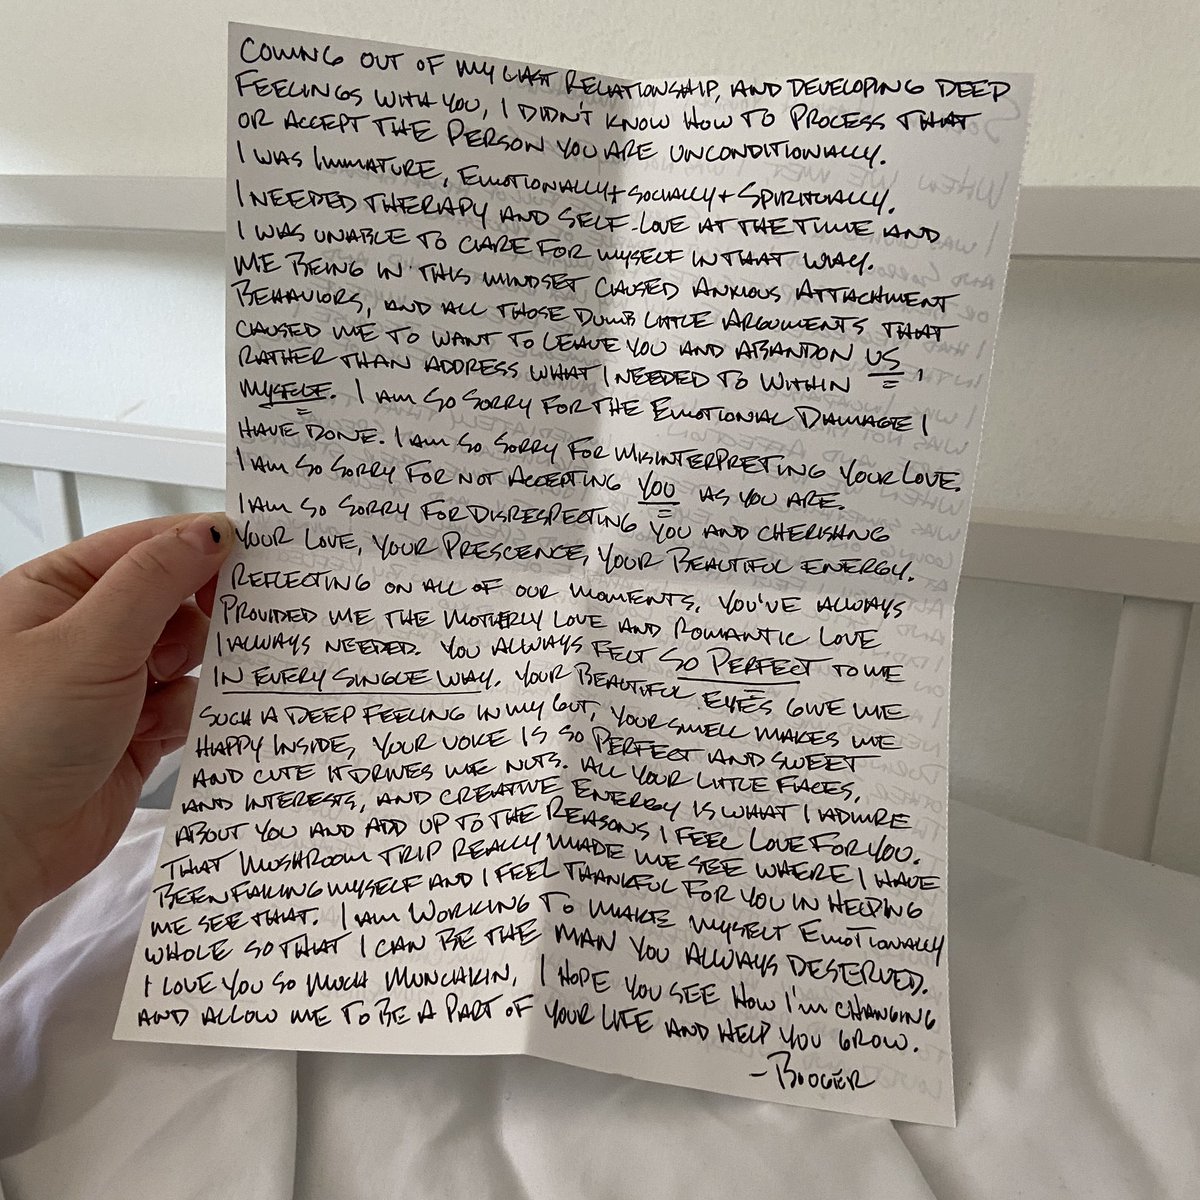 COMING OUT OF MY LAST RELATIONSHIP, AND DEVELOPING DEEP
FEELINGS WITH YOU, I DIDN'T KNOW HOW TO PROCESS THAT
OR ACCEPT THE PERSON YOU ARE UNCONDITIONALLY.
I WAS IMMATURE, EMOTIONALLY + SOCIALLY + SPIRITUALLY.
I NEEDED THERAPY AND SELF-LOVE AT THE TIME AND
I WAS UNABLE TO CARE FOR MYSELF IN THAT WAY.
ME BEING IN THIS MINDSET CAUSED ANXIOUS ATTACHMENT
BEHAVIORS, AND ALL THOSE DUMB LITTLE ARGUMENTS THAT
CAUSED ME TO WANT TO LEAVE YOU AND ABANDON US,
RATHER THAN ADDRESS WHAT I NEEDED TO WITHIN
MYSELF. I AM SO SORRY FOR THE EMOTIONAL DAMAGE I
HAVE DONE. I AM SO SORRY FOR MISINTERPRETING YOUR LOVE.
I AM SO SORRY FOR NOT ACCEPTING YOU AS YOU ARE.
I AM SO SORRY FOR DISRESPECTING YOU AND CHERISHNG
YOUR LOVE, YOUR PRESCENCE, YOUR BEAUTIFUL ENERGY.
REFLECTING ON ALL OF OUR MOMENTS, YOU'VE ALWAYS
PROVIDED ME THE MOTHERLY LOVE AND ROMANTIC LOVE
I ALWAYS NEEDED. YOU ALWAYS FELT SO PERFECT TO ME
IN EVERY SINGLE WAY. YOUR BEAUTIFUL EYES GIVE ME
SUCH A DEEP FEELING IN MY GUT, YOUR SMELL MAKES ME
HAPPY INSIDE, YOUR VOICE IS SO PERFECT AND SWEET
AND CUTE IT DRIVES ME NUTS. ALL YOUR LITTLE FACES,
AND INTERESTS, AND CREATIVE ENERGY IS WHAT I ADMIRE
ABOUT YOU AND ADD UP TO THE REASONS I FEEL LOVE FOR YOU.
THAT MUSHROOM TRIP REALLY MADE ME SEE WHERE I HAVE
BEEN FAILING MYSELF AND I FEEL THANKFUL FOR YOU IN HELPING
ME SEE THAT. I AM WORKING TO MAKE MYSELF EMOTIONALLY
WHOLE SO THAT I CAN BE THE MAN YOU ALWAYS DESERVED.
I LOVE YOU SO MUCH MUNCHKIN, I HOPE YOU SEE HOW I'M CHANGING
AND ALLOW ME TO BE A PART OF YOUR LIFE AND HELP YOU GROW.
- BOOGER